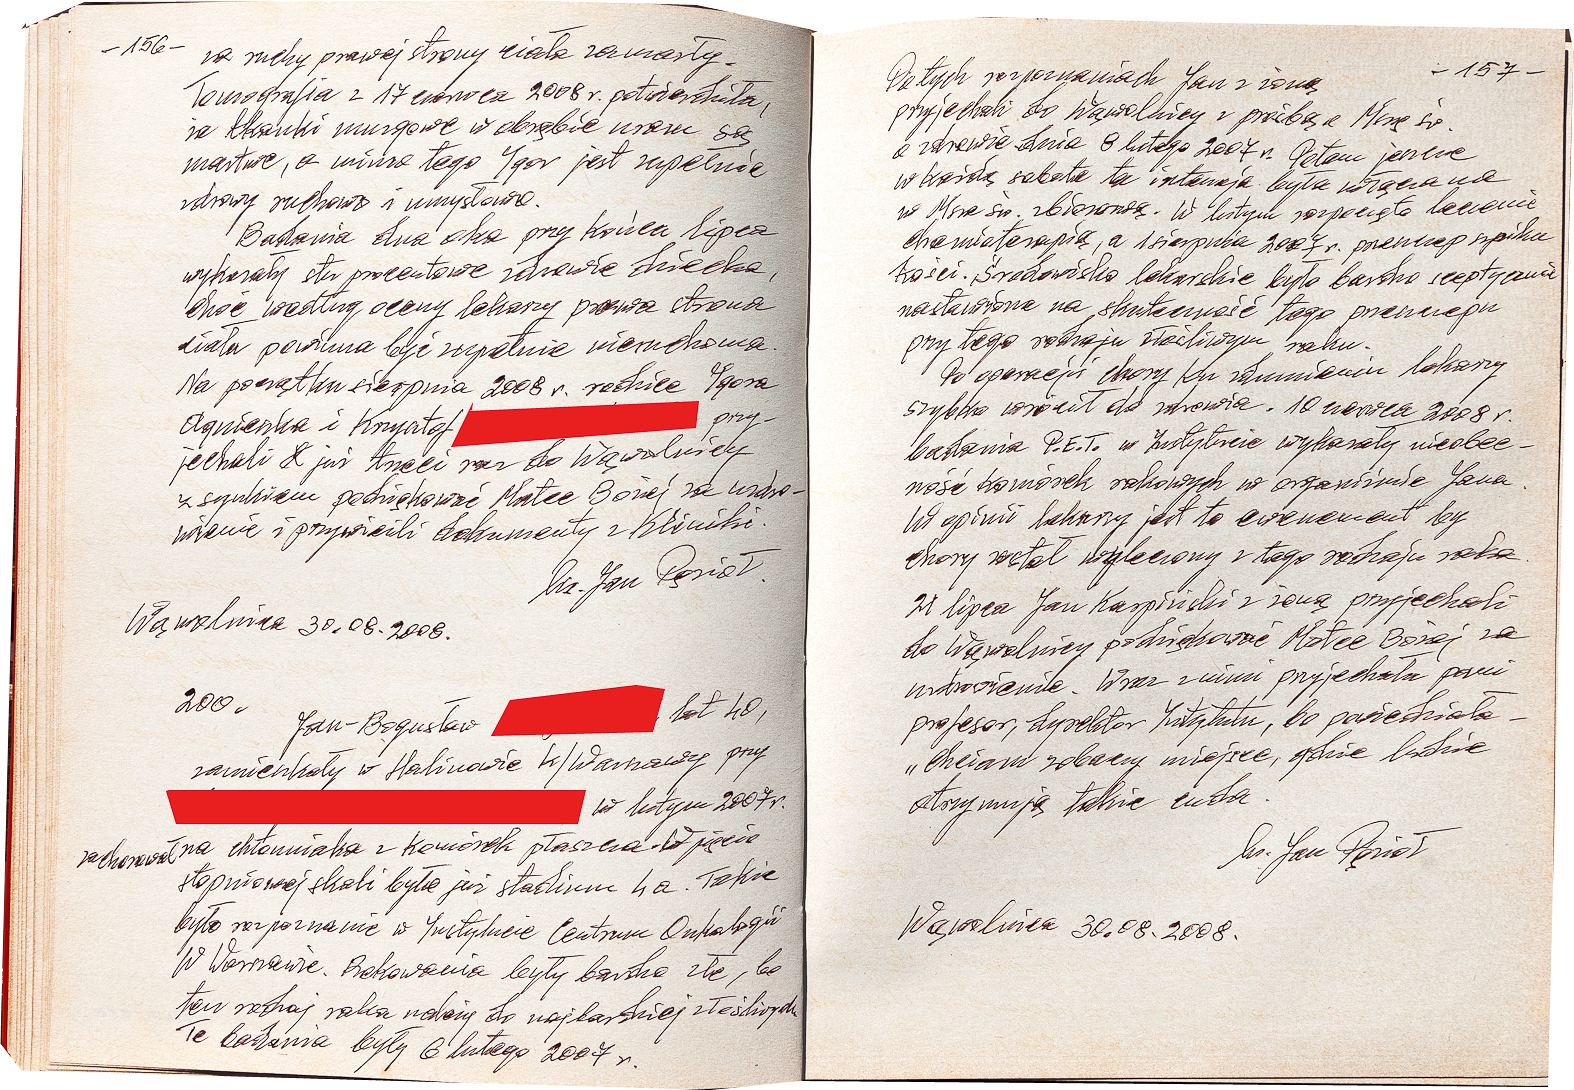 -156-
za ruchy prawej strony ciała zamarły.
Tomografia z 17 czerwca 2008 r. potwierdziła,
że tkanki mózgowe w obrębie urazu są
martwe, a mimo tego Igor jest zupełnie
zdrowy ruchowo i umysłowo.
Badania dna oka przy końcu lipca
wykazały stu procentowe zdrowie dziecka,
choć według oceny lekarzy prawa strona
ciała powinna być zupełnie nieruchoma.
Na początku sierpnia 2008 r. rodzice Igora
Agnieszka i Krzysztof przy-
jechali już trzeci raz do Wąwolnicy
z synkiem podziękować Matce Bożej za uzdro-
wienie i przywieźli dokumenty z Kliniki.
ks. Jan Pęzioł.
Wąwolnica 30.08.2008.
200.
Jan-Bogusław lat 40,
zamieszkały w Halinowie k/Warszawy przy
w lutym 2007 r.
zachorował na chłoniaka z komórek płaszcza. W pięcio
stopniowej skali było już stadium 4a. Takie
było rozpoznanie w Instytucie Centrum Onkologii
W Warszawie. Rokowania były bardzo złe, bo
ten rodzaj raka należy do najbardziej złośliwych
Te badania były 6 lutego 2007 r.
-157-
Po tych rozpoznaniach Jan z żoną
przyjechali do Wąwolnicy z prośbą o Mszę św.
o zdrowie dnia 8 lutego 2007 r. Potem jeszcze
w każdą sobotę ta intencja była włączana
w Msze św. zbiorową. W lutym rozpoczęto leczenie
chemioterapią, a 1 sierpnia 2007 r. przeszczep szpiku
kości. Środowisko lekarskie było bardzo sceptycznie
nastawione na skuteczność tego przeszczepu
przy tego rodzaju złośliwym raku.
Po operacji chory ku zdumieniu lekarzy
szybko wrócił do zdrowia. 10 marca 2008 r.
badania P.E.T. w Instytucie wykazały nieobec-
ność komórek rakowych w organiźmie Jana.
W opinii lekarzy jest to ewenement by
chory został wyleczony z tego rodzaju raka.
21 lipca Jan Karpiński z żoną przyjechali
do Wąwolnicy podziękować Matce Bożej za
uzdrowienie. Wraz z nimi przyjechała pani
profesor, dyrektor Instytutu, bo powiedziała -
„Chciałam zobaczyć miejsce, gdzie ludzie
otrzymują takie cuda.
ks. Jan Pęzioł
Wąwolnica 30.08.2008.